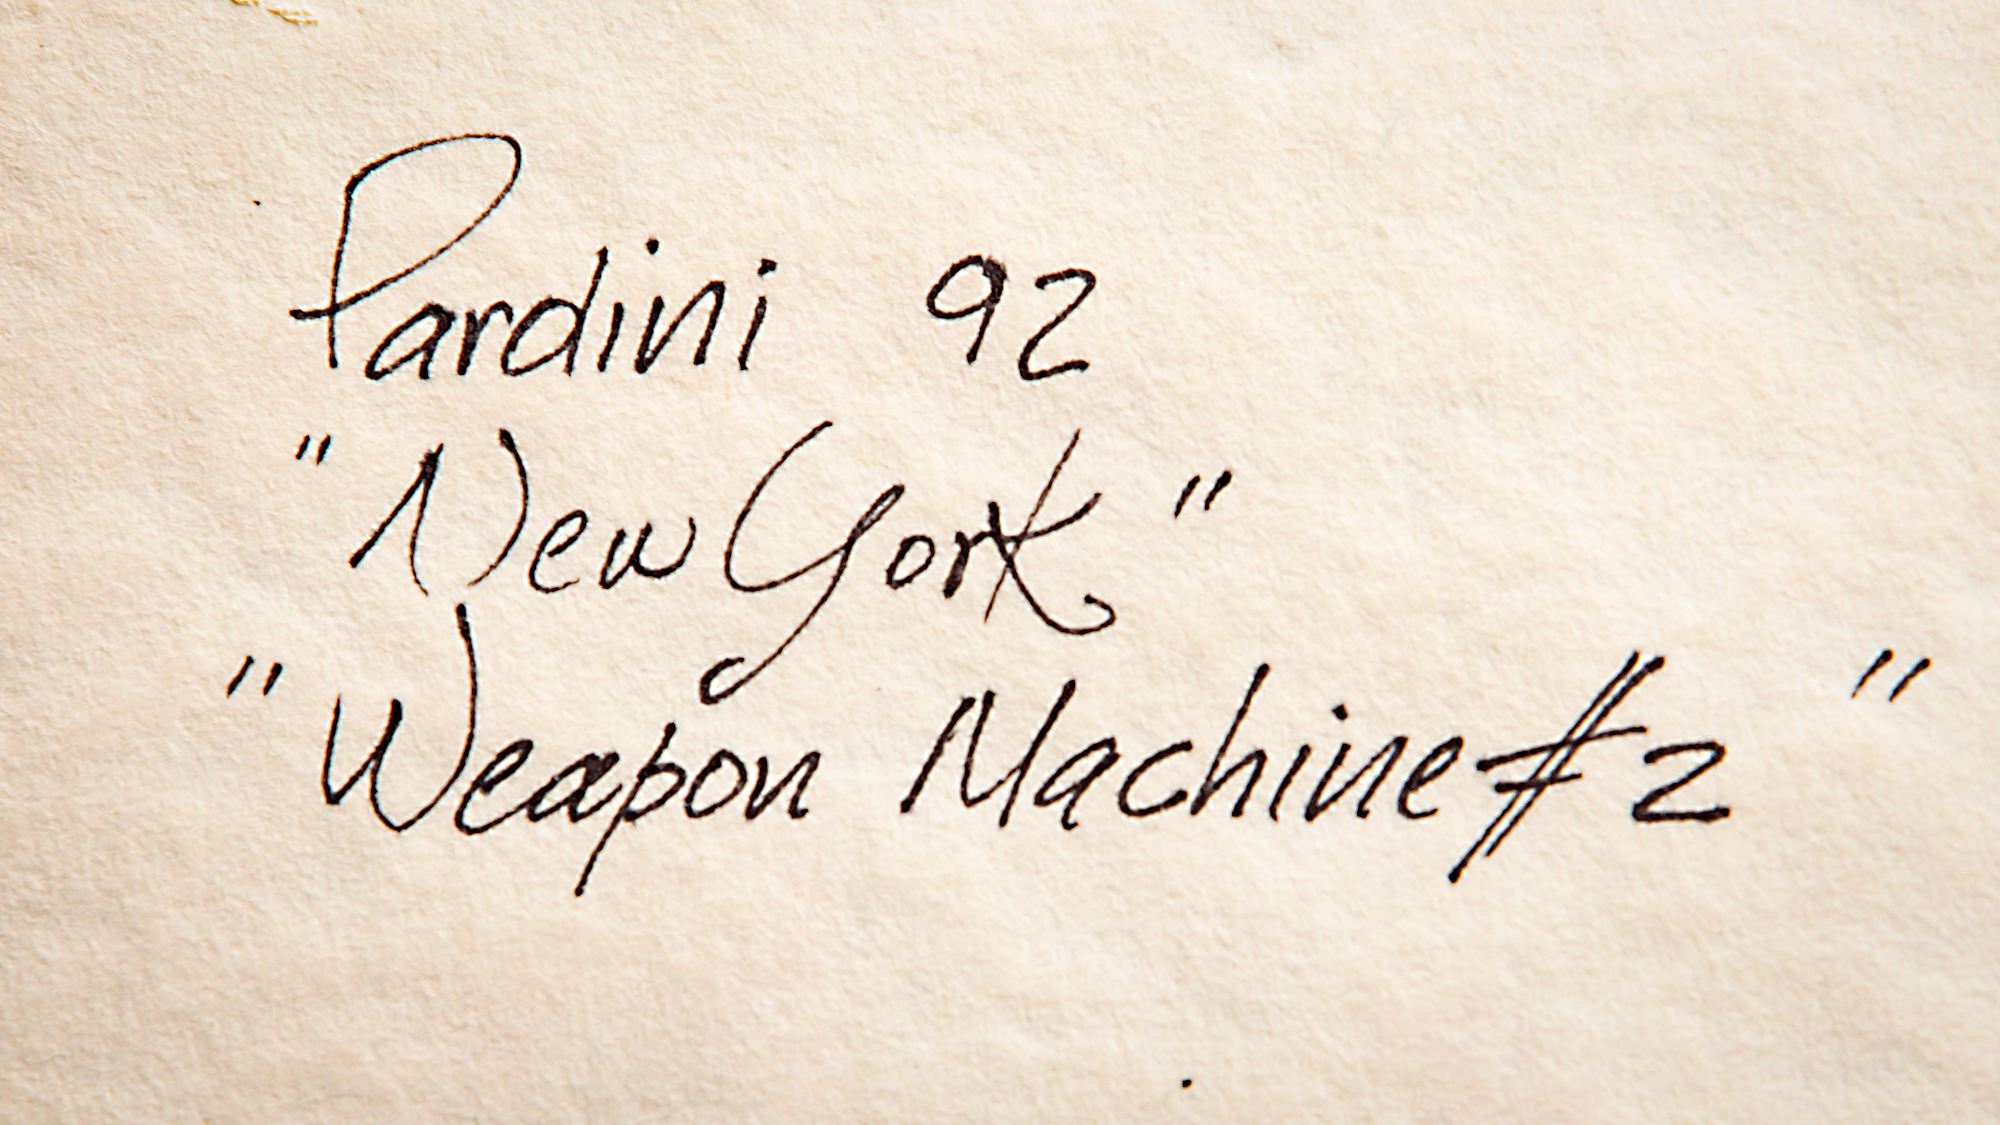 Pardini 92
"New York"
"Weapon Machine #2"